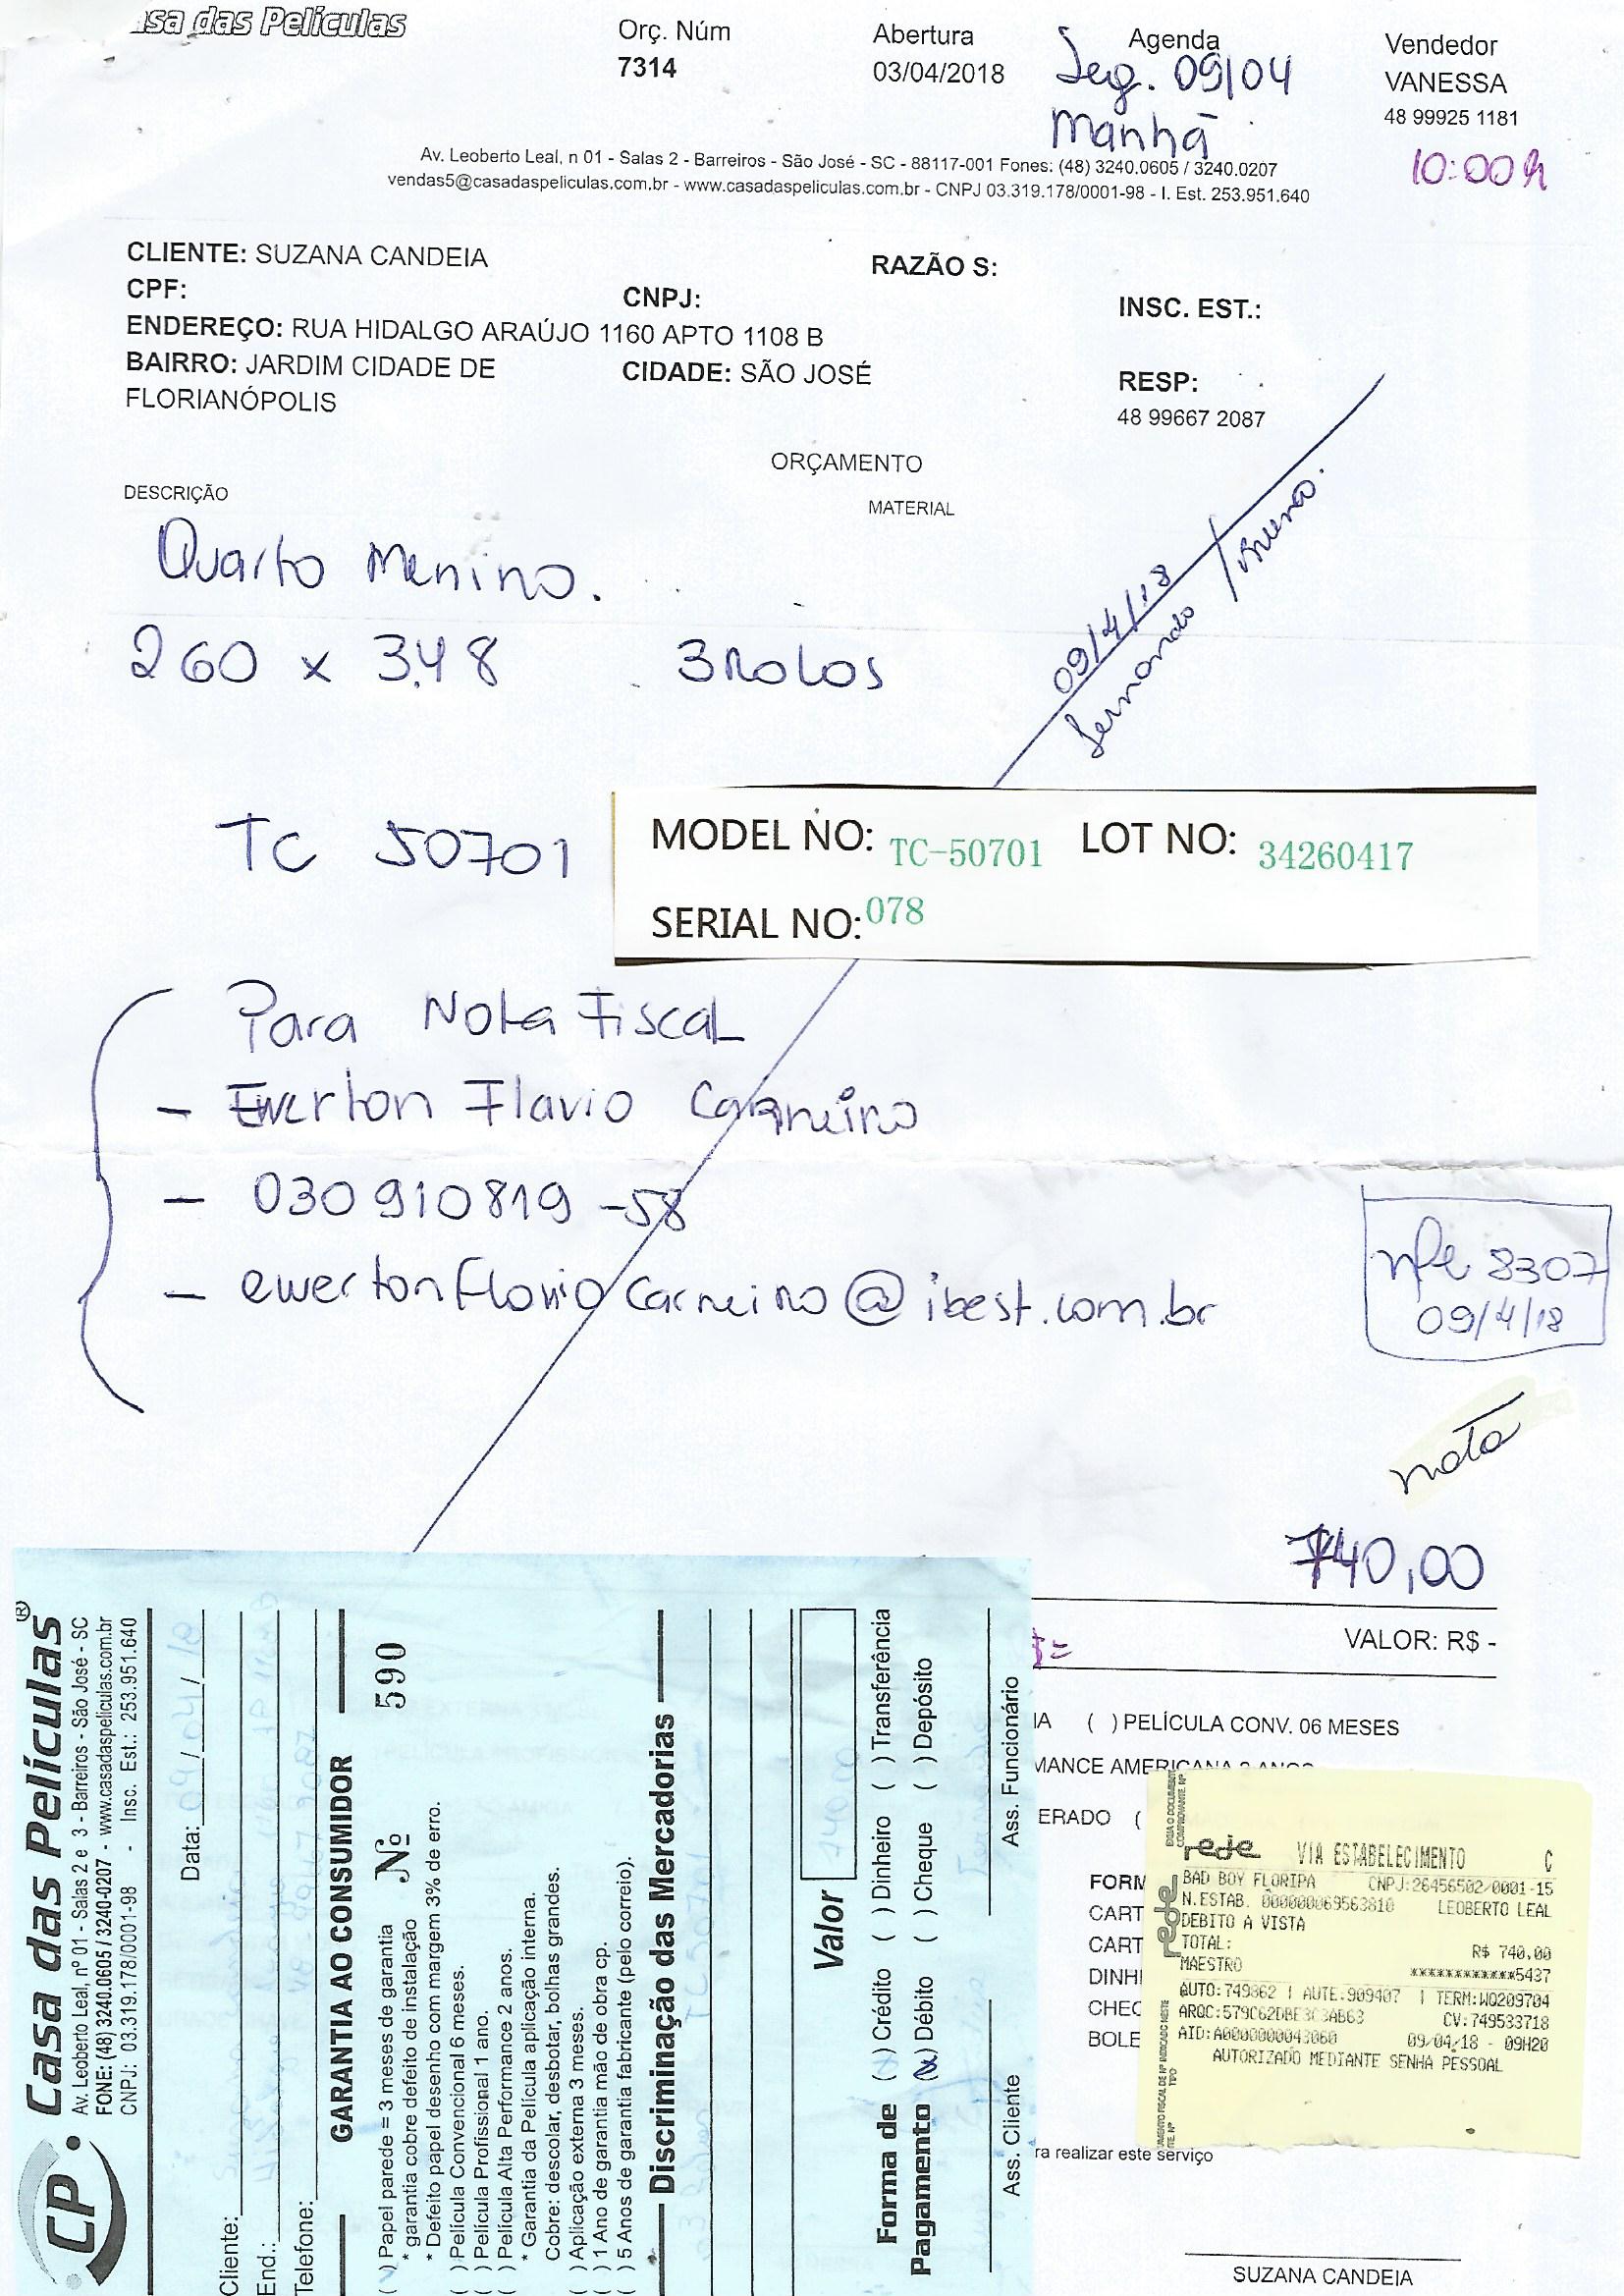 asa das Películas
Orç. Núm
7314
Abertura
03/04/2018
Agenda
Seg. 09/04
Manhã
Vendedor
VANESSA
48 99925 1181
10:00 h
Av. Leoberto Leal, n 01 - Salas 2 - Barreiros - São José - SC - 88117-001 Fones: (48) 3240.0605 / 3240.0207
vendas5@casadaspeliculas.com.br - www.casadaspeliculas.com.br - CNPJ 03.319.178/0001-98 - I. Est. 253.951.640
CLIENTE: SUZANA CANDEIA
RAZÃO S:
CPF:
CNPJ:
INSC. EST.:
ENDEREÇO: RUA HIDALGO ARAÚJO 1160 APTO 1108 B
BAIRRO: JARDIM CIDADE DE
FLORIANÓPOLIS
CIDADE: SÃO JOSÉ
RESP:
48 99667 2087
ORÇAMENTO
DESCRIÇÃO
MATERIAL
Quarto Menino.
260 x 3.48 3 Rolos
09/4/18
Fernando / Bruno.
TC 50701
MODEL NO: TC-50701 LOT NO: 34260417
SERIAL NO: 078
Para Nota Fiscal
- Ewerton Flavio Carneiro
- 030910819-58
- ewertonflaviocarneiro@ibest.com.br
nfe 8307
09/4/18
nota
740,00
VALOR: R$ -
IA ( ) PELÍCULA CONV. 06 MESES
MANCE AMERICANA 2 ANOS
ERADO (
FORM
CART
CART
DINHI
CHEC
BOLE
ra realizar este serviço
SUZANA CANDEIA
CP
Casa das Películas®
Av. Leoberto Leal, nº 01 - Salas 2 e 3 - Barreiros - São José - SC
FONE: (48) 3240.0605 / 3240-0207 - www.casadaspeliculas.com.br
CNPJ: 03.319.178/0001-98 - Insc. Est.: 253.951.640
Data: 09/04/18
Cliente:
End.:
Telefone:
GARANTIA AO CONSUMIDOR
Nº 590
( ) Papel parede = 3 meses de garantia
* garantia cobre defeito de instalação
* Defeito papel desenho com margem 3% de erro.
( ) Película Convencional 6 meses.
( ) Película Profissional 1 ano.
( ) Película Alta Performance 2 anos.
* Garantia da Película aplicação interna.
Cobre: descolar, desbotar, bolhas grandes.
( ) Aplicação externa 3 meses.
( ) 1 Ano de garantia mão de obra cp.
( ) 5 Anos de garantia fabricante (pelo correio).
Discriminação das Mercadorias
TC 50701
Valor 740,00
Forma de Pagamento
( ) Crédito ( ) Dinheiro ( ) Transferência
(x) Débito ( ) Cheque ( ) Depósito
Ass. Cliente
Ass. Funcionário
rede VIA ESTABELECIMENTO C
BAD BOY FLORIPA CNPJ:26456502/0001-15
N.ESTAB. 000000069563810 LEOBERTO LEAL
DEBITO A VISTA
TOTAL: R$ 740,00
MAESTRO ************5437
AUTO:749862 | AUTE:909407 | TERM:WQ209704
ARQC:579C62DBE3C3AB63 CV:749533718
AID:A0000000043060 09/04/18 - 09H20
AUTORIZADO MEDIANTE SENHA PESSOAL
rede